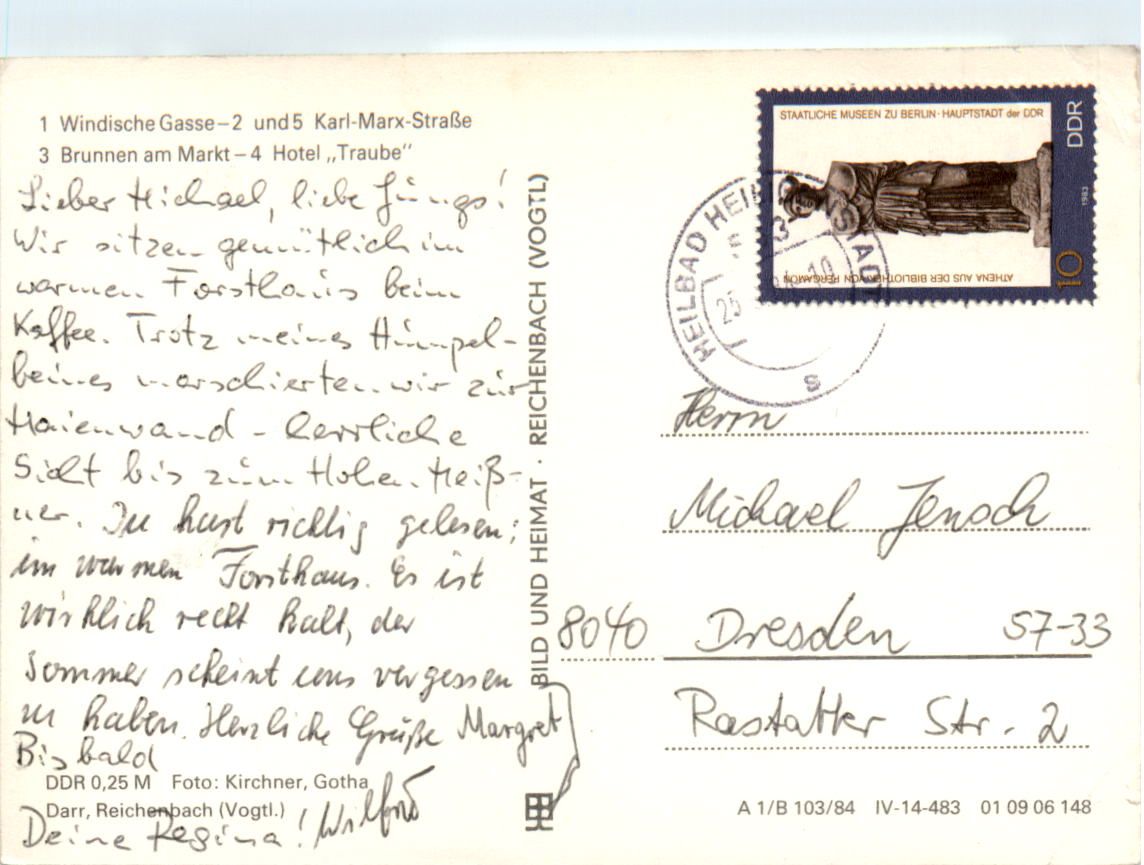 1 Windische Gasse–2 und 5 Karl-Marx-Straße
3 Brunnen am Markt–4 Hotel „Traube"
Lieber Michael, liebe Jungs!
Wir sitzen gemütlich im
warmen Forsthaus beim
Kaffee. Trotz meines Humpel-
beines marschierten wir zur
Maienwand - herrliche
Sicht bis zum Hohen Meiß-
ner. Du hast richtig gelesen:
im warmen Forsthaus. Es ist
wirklich recht kalt, der
Sommer scheint uns vergessen
zu haben. Herzliche Grüße Margret
Bis bald
Deine Regina! Wilfried
DDR 0,25 M Foto: Kirchner, Gotha
Darr, Reichenbach (Vogtl.)
BILD UND HEIMAT · REICHENBACH (VOGTL)
STAATLICHE MUSEEN ZU BERLIN · HAUPTSTADT der DDR
ATHENA AUS DER BIBLIOTHEK VON PERGAMON
DDR
1983
10
HEILBAD HEILIGENSTADT
25
10
s
Herrn
Michael Jensch
8040 Dresden 57-33
Rastatter Str. 2
A 1/B 103/84 IV-14-483 01 09 06 148